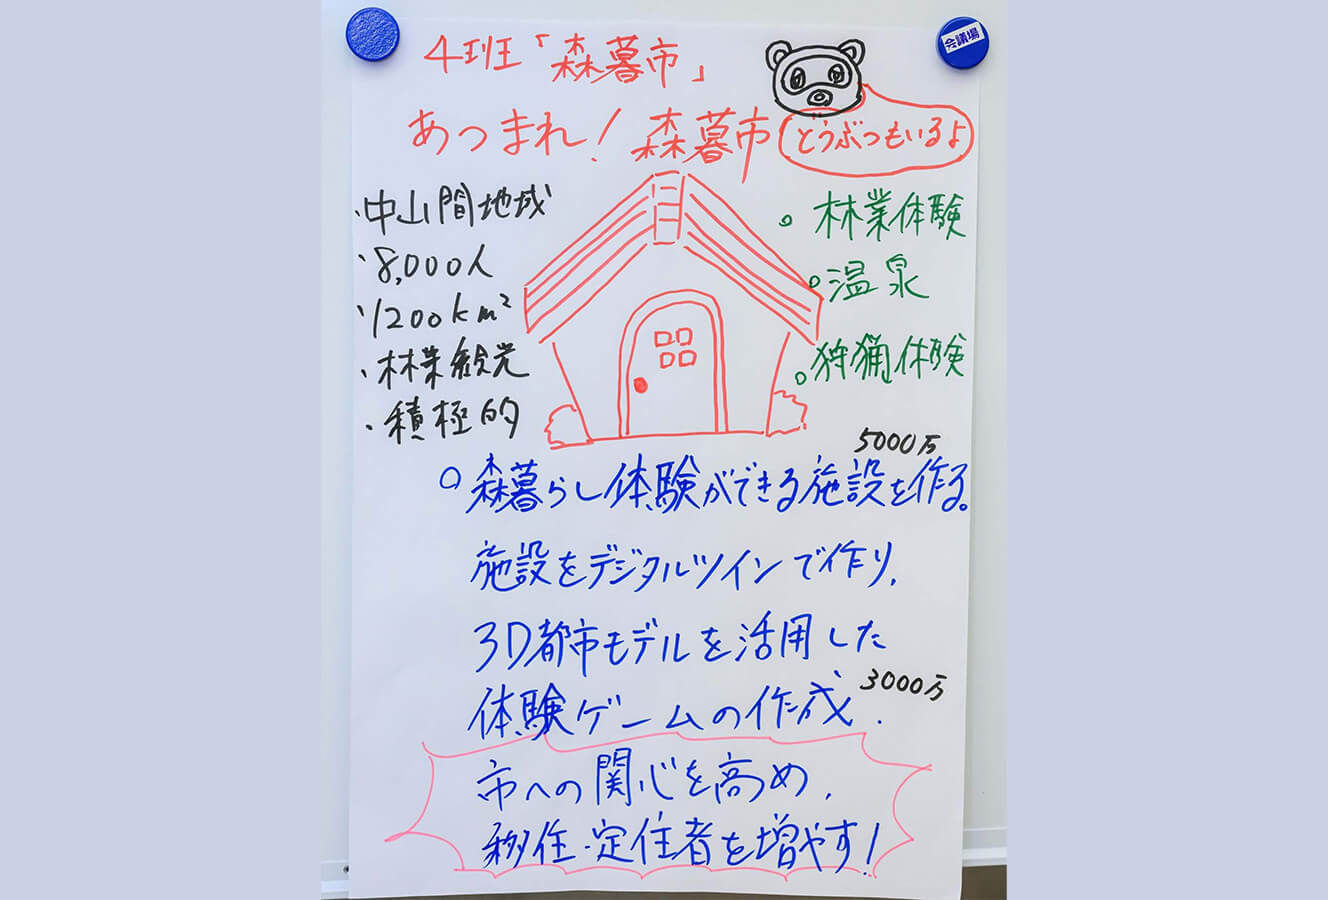 会議場
4班「森暮市」
あつまれ！森暮市
どうぶつもいるよ
・中山間地域
・8,000人
・1200km²
・林業観光
・積極的
○林業体験
○温泉
○狩猟体験
5000万
○森暮らし体験ができる施設を作る。
施設をデジタルツインで作り、
3D都市モデルを活用した
体験ゲームの作成.
3000万
市への関心を高め、
移住・定住者を増やす！